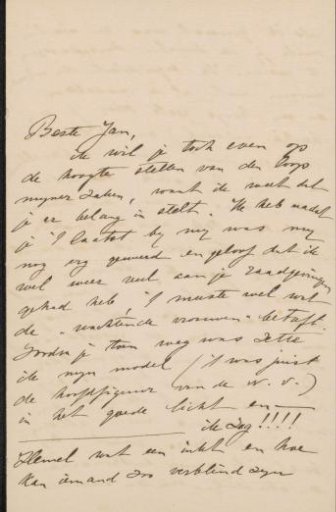 Beste Jan,
ik wil je toch even op
de hoogte stellen van den loop
mijner zaken, want ik weet dat
je er belang in stelt. Ik heb nadat
je 't laatst by my was my
nog erg geweerd en geloof dat ik
wel weer veel aan je raadgevingen
gehad heb! 't moeste wel wat
de "wachtende vrouwen" betaft.
Zoodra je toen weg was zette
ik myn model ('t was juist
de hoofdfiguur van de w. v.)
in het goede licht en —
ik zag!!!!
Hemel wat een inkt en hoe
kan iemand zoo verblind zyn